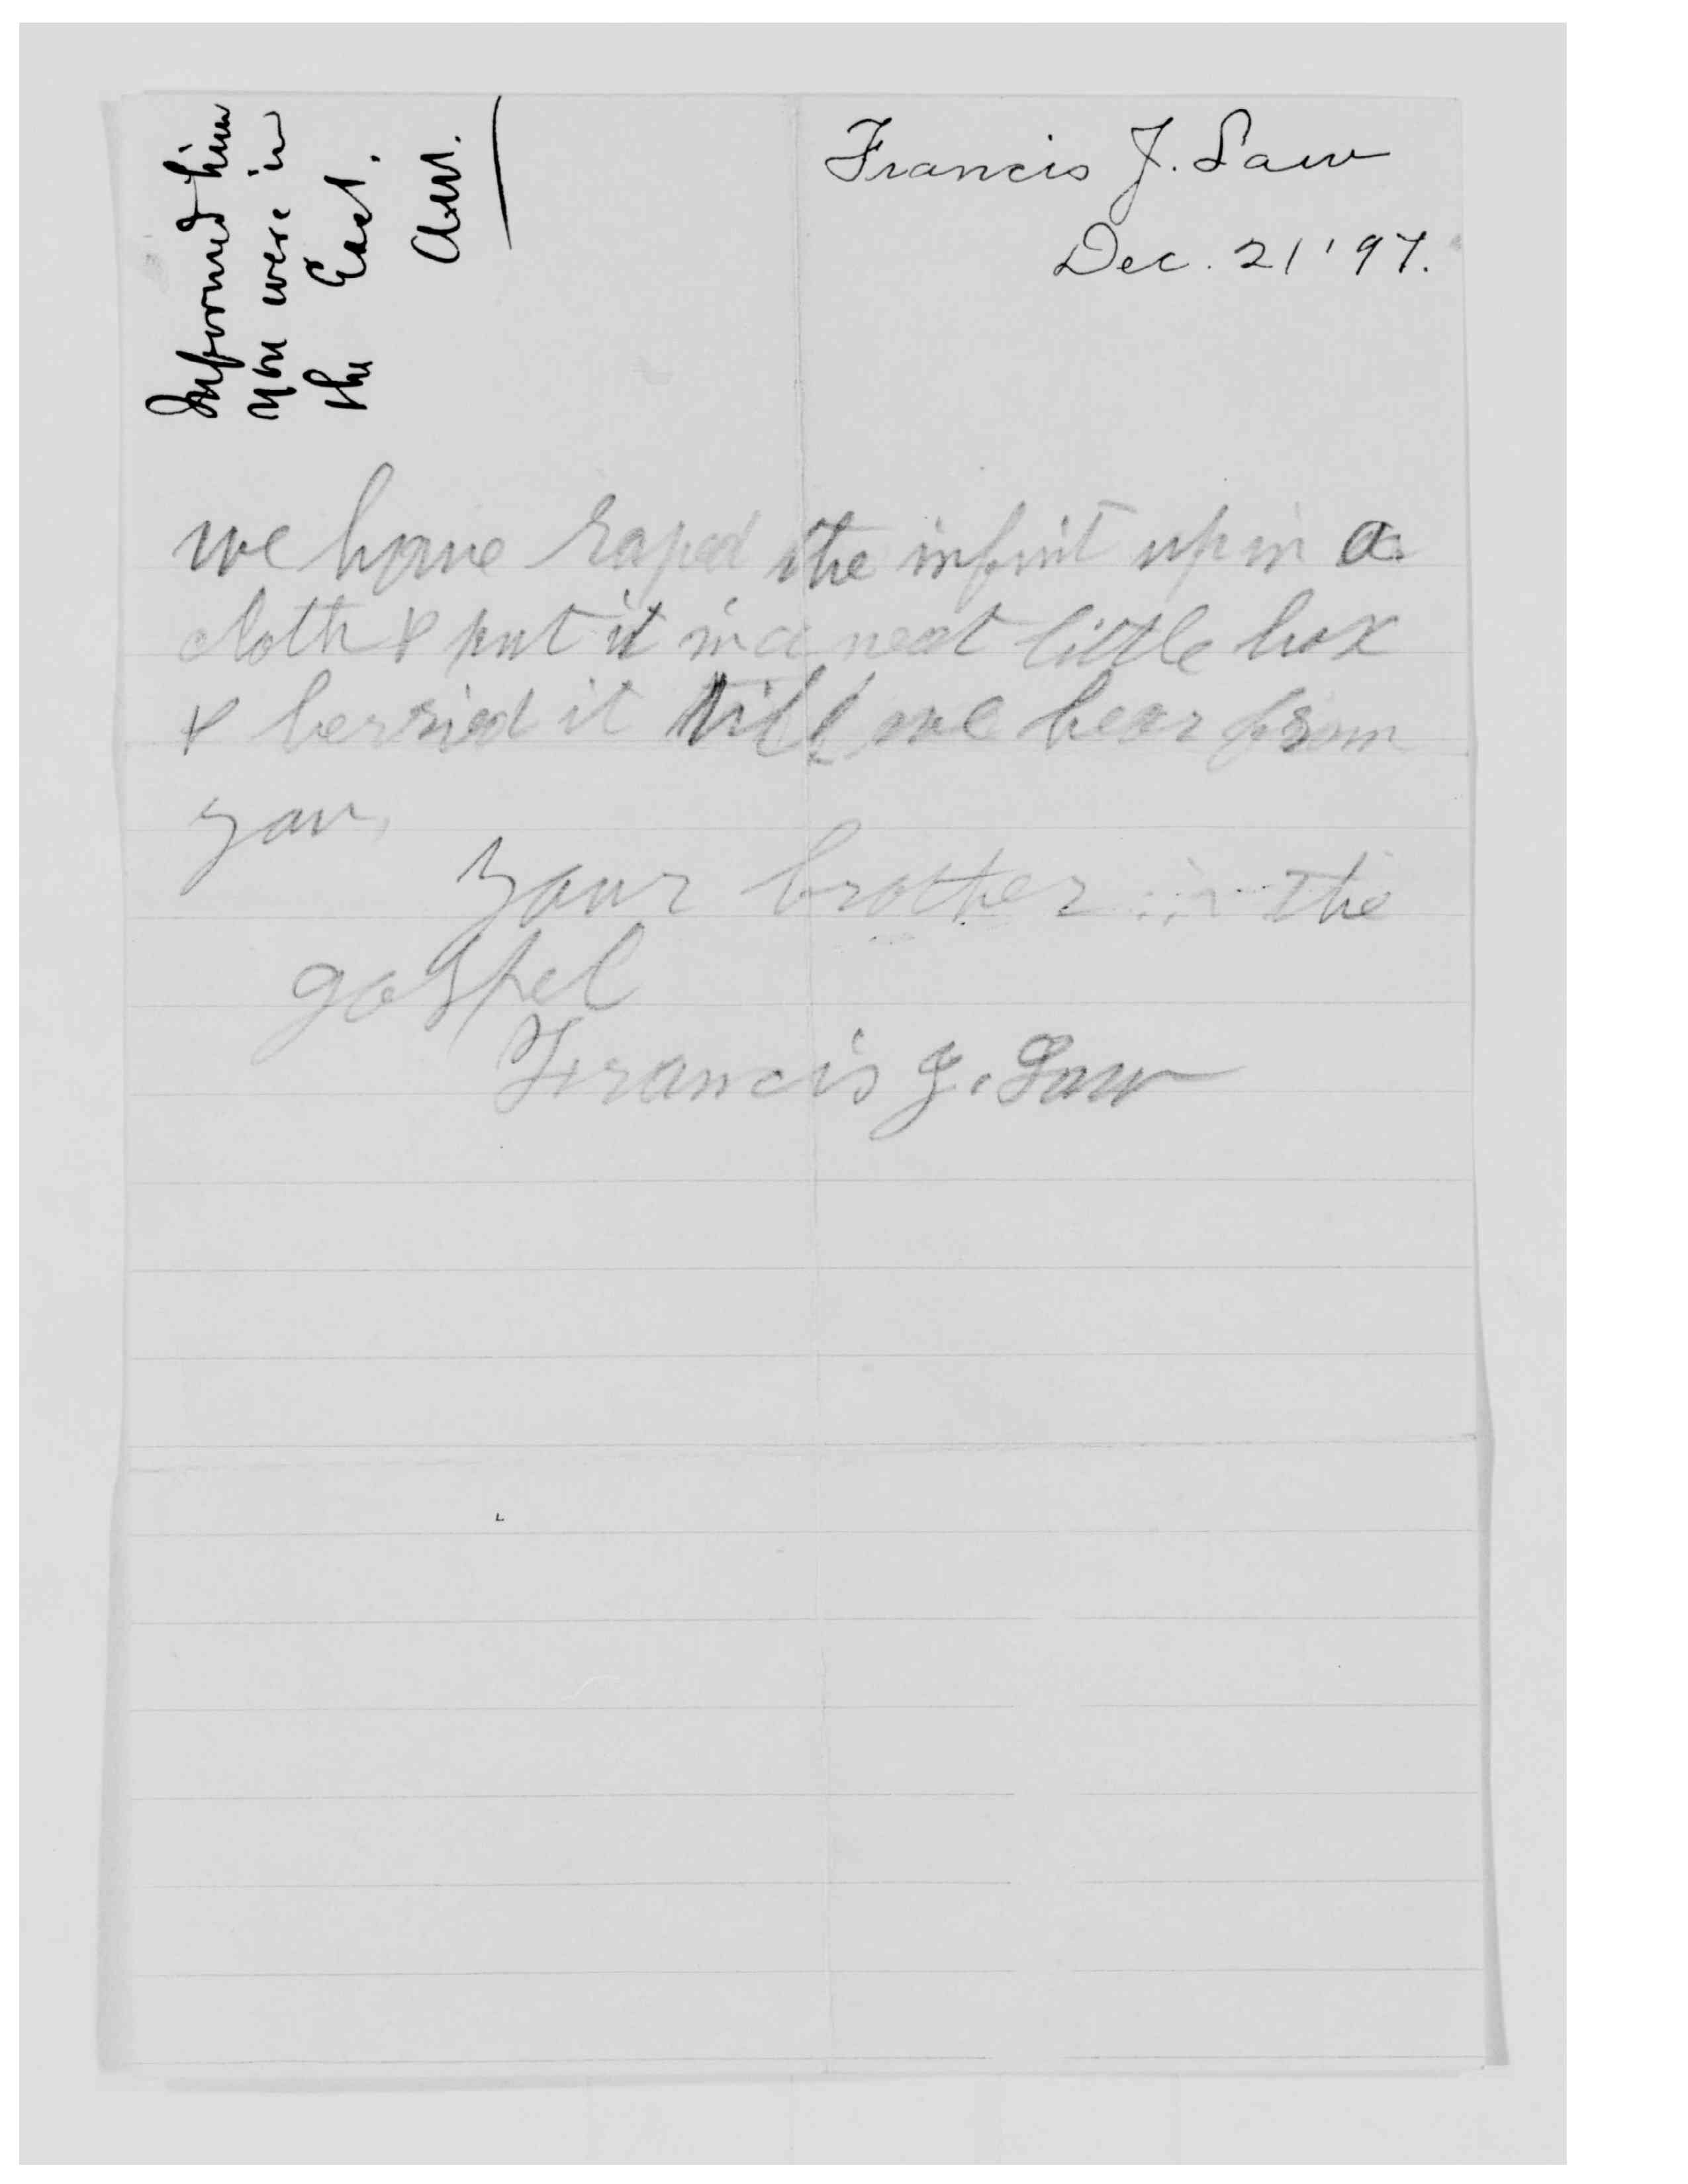 Informed him
you were in
the East.
Ans.
Francis J. Law
Dec. 21 '97.
we have raped the infint up in a
cloth & put it in a neat little box
& berried it till we hear from
you
Your brother in the
gospel
Francis J. Law